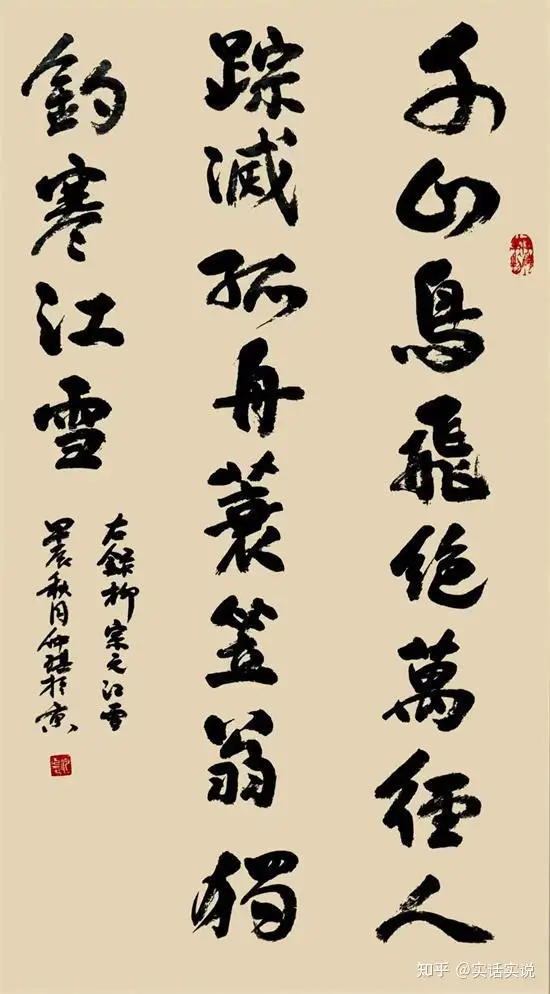 千山鳥飛絶萬徑人
踪滅孤舟蓑笠翁獨
釣寒江雪
右錄柳宗元江雪
甲辰秋月仲琪於京
知乎 @实话实说